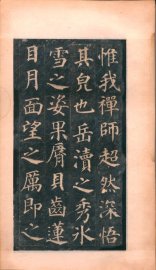 惟我禪師超然深悟
其皃也岳瀆之秀冰
雪之姿果脣貝齒蓮
日月面望之厲即之